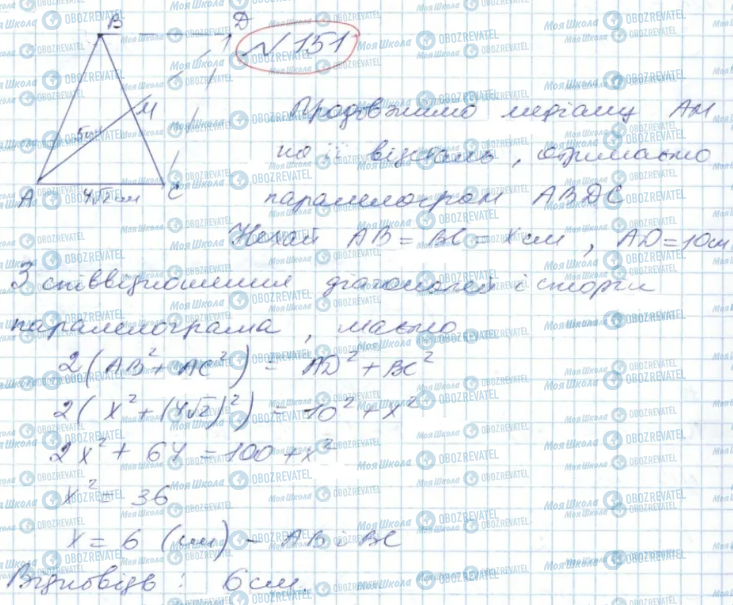 B D
№151
M
5см
A 4√2см C
Продовжимо медіану AM
на її відстань, отримаємо
паралелограм ABDC
Нехай AB = BC = x см, AD = 10см
З співвідношення діагоналей і сторін
паралелограма, маємо
2(AB² + AC²) = AD² + BC²
2(x² + (4√2)²) = 10² + x²
2x² + 64 = 100 + x²
x² = 36
x = 6 (см) - AB і BC
Відповідь: 6см.
Моя Школа OBOZREVATEL